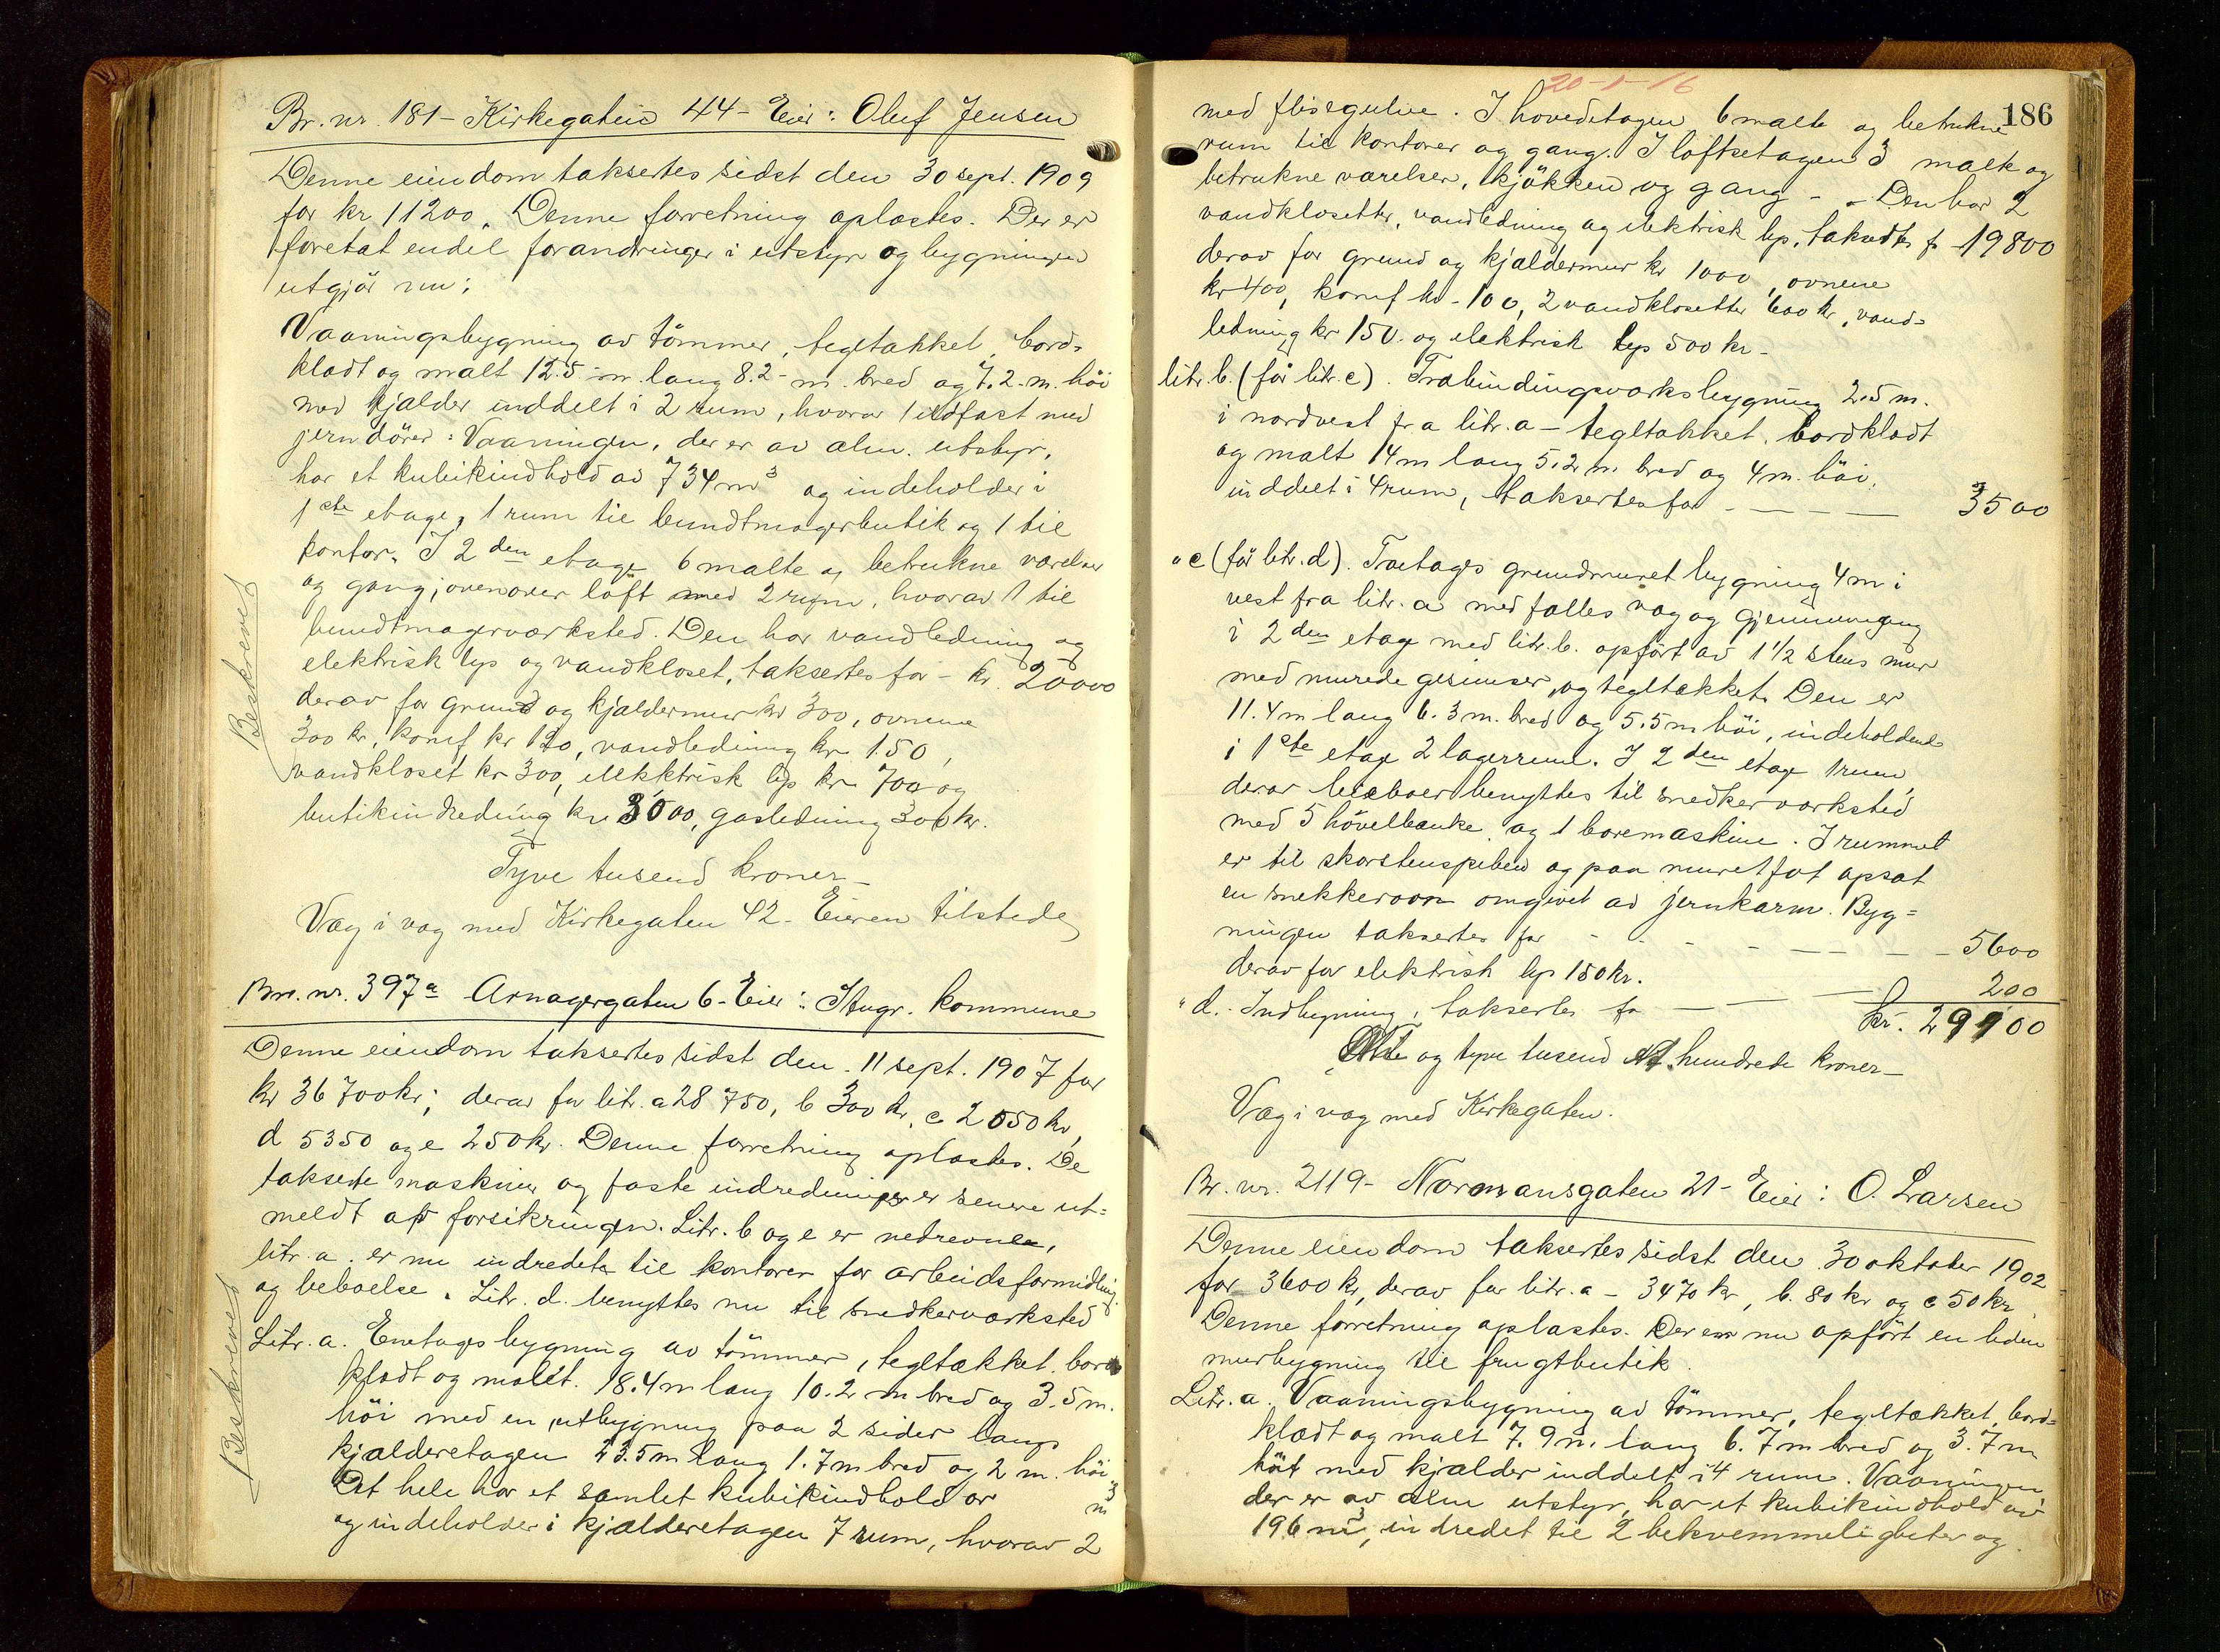 Br. nr. 181 – Kirkegaten 44 – Eier: Oluf Jensen
Denne eiendom taksertes sidst den 30 sept. 1909
for kr 11200. Denne forretning oplæstes. Der er
foretat endel forandringer i utstyr og bygningen
utgjör nu:
Vaaningsbygning av tömmer, tegltækket, bord-
klædt og malt 12.5 m. lang 8.2 m. bred og 7.2 m. höi
med kjælder inddelt i 2 rum, hvorav 1 ildfast med
jerndörer: Vaaningen, der er av alm. utstyr,
har et kubikindhold av 734 m3 og indeholder i
1ste etage, 1 rum til bundtmagerbutik og 1 til
kontor. I 2den etage 6 malte og betrukne værelser
og gang; ovenover löft med 2 rum, hvorav 1 til
bundtmagerværksted. Den har vandledning og
elektrisk lys og vandkloset, taksertes for – kr. 20000
derav for grund og kjældermur kr 300, ovnene
300 kr, komf kr 120, vandledning kr. 150,
vandkloset kr 300, elekktrisk lys kr 700 og
butikindredning kr 3000, gasledning 300 kr.
Tyve tusend kroner –
Væg i væg med Kirkegaten 42 – Eieren tilstede
Beskrevet
Br. nr. 397a Arnagergaten 6 – Eier: Stvgr. kommune
Denne eiendom taksertes sidst den 11 sept. 1907 for
kr 36700 kr; derav for litr. a 28750, b 300 kr, c 2050 kr,
d 5350 og e 250 kr. Denne forretning oplæstes. De
takserte maskiner og faste indredninger er senere ut-
meldt av forsikringen. Litr. b og e er nedrevne,
litr. a. er nu indredet til kontorer for arbeidsformidling
og beboelse. Litr. d. benyttes nu til snedkerværksted
Beskrevet
Litr. a. Enetages bygning av tömmer, tegltækket, bord-
klædt og malet. 18.4 m lang 10.2 m bred og 3.5 m.
höi med en utbygning paa 2 sider langs
kjælderetagen 23.5 m lang 1.7 m bred og 2 m. höi
Det hele har et samlet kubikindhold av m3
og indeholder i kjælderetagen 7 rum, hvorav 2
20-1-16
186
med flisegulve. I hovedetagen 6 malte og betrukne
rum til kontorer og gang. I loftsetagen 3 malte og
betrukne værelser, kjökken og gang – Den har 2
vandklosetter, vandledning og elektrisk lys, taksertes for – 19800
derav for grund og kjældermur kr 1000, ovnene
kr 400, komf kr – 100, 2 vandklosetter 600 kr, vand-
ledning kr 150. og elektrisk lys 500 kr –
litr. b. (för litr. c). Træbindingsverksbygning 2.5 m.
i nordvest fra litr. a – tegltækket, bordklædt
og malt 14 m lang 5.2 m. bred og 4 m. höi,
inddelt i 4 rum, taksertes for – – – – 3500
" c (för litr. d). Toetages grundmuret bygning 4 m i
vest fra litr. a med fælles væg og gjennemgang
i 2den etage med litr. b. opfört av 1 1/2 stens mur
med murede gesimser, og tegltækket. Den er
11.4 m lang 6.3 m. bred og 5.5 m höi, indeholdende
i 1ste etage 2 lagerrum. I 2den etage 1 rum,
derav benyttes til snedkerværksted
med 5 hövelbænke og 1 boremaskine. I rummet
er til skorstenspiben og paa muret fot opsat
en snekkerovn omgivet av jernkarm. Byg-
ningen taksertes for – – – – – – – 5600
derav for elektrisk lys 150 kr.
" d. Indhegning, taksertes for – – – 200
kr. 29100
og tyve tusend hundrede kroner –
Væg i væg med Kirkegaten.
Br. nr. 2119 – Normansgaten 21 – Eier: O. Larsen
Denne eiendom taksertes sidst den 30 oktober 1902
for 3600 kr, derav for litr. a – 3470 kr, b. 80 kr og c 50 kr.
Denne forretning oplæstes. Der er nu opfört en liden
murbygning til frugtbutik.
Litr. a. Vaaningsbygning av tömmer, tegltækket, bord-
klædt og malt 7.9 m. lang 6.7 m bred og 3.7 m
höi med kjælder inddelt i 4 rum. Vaaningen
der er av alm utstyr, har et kubikindhold av
196 m3, indredet til 2 bekvemmeligheter og